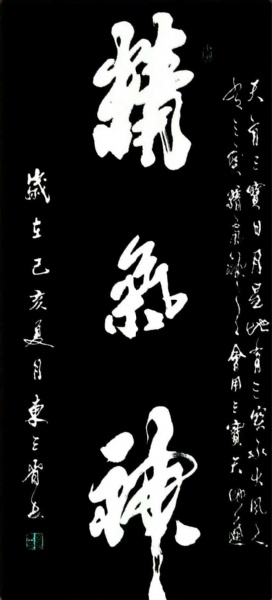 天有三寶日月星地有三寶水火風人
有三寶精氣神會用三寶天地通
精氣神
歲在己亥夏月東